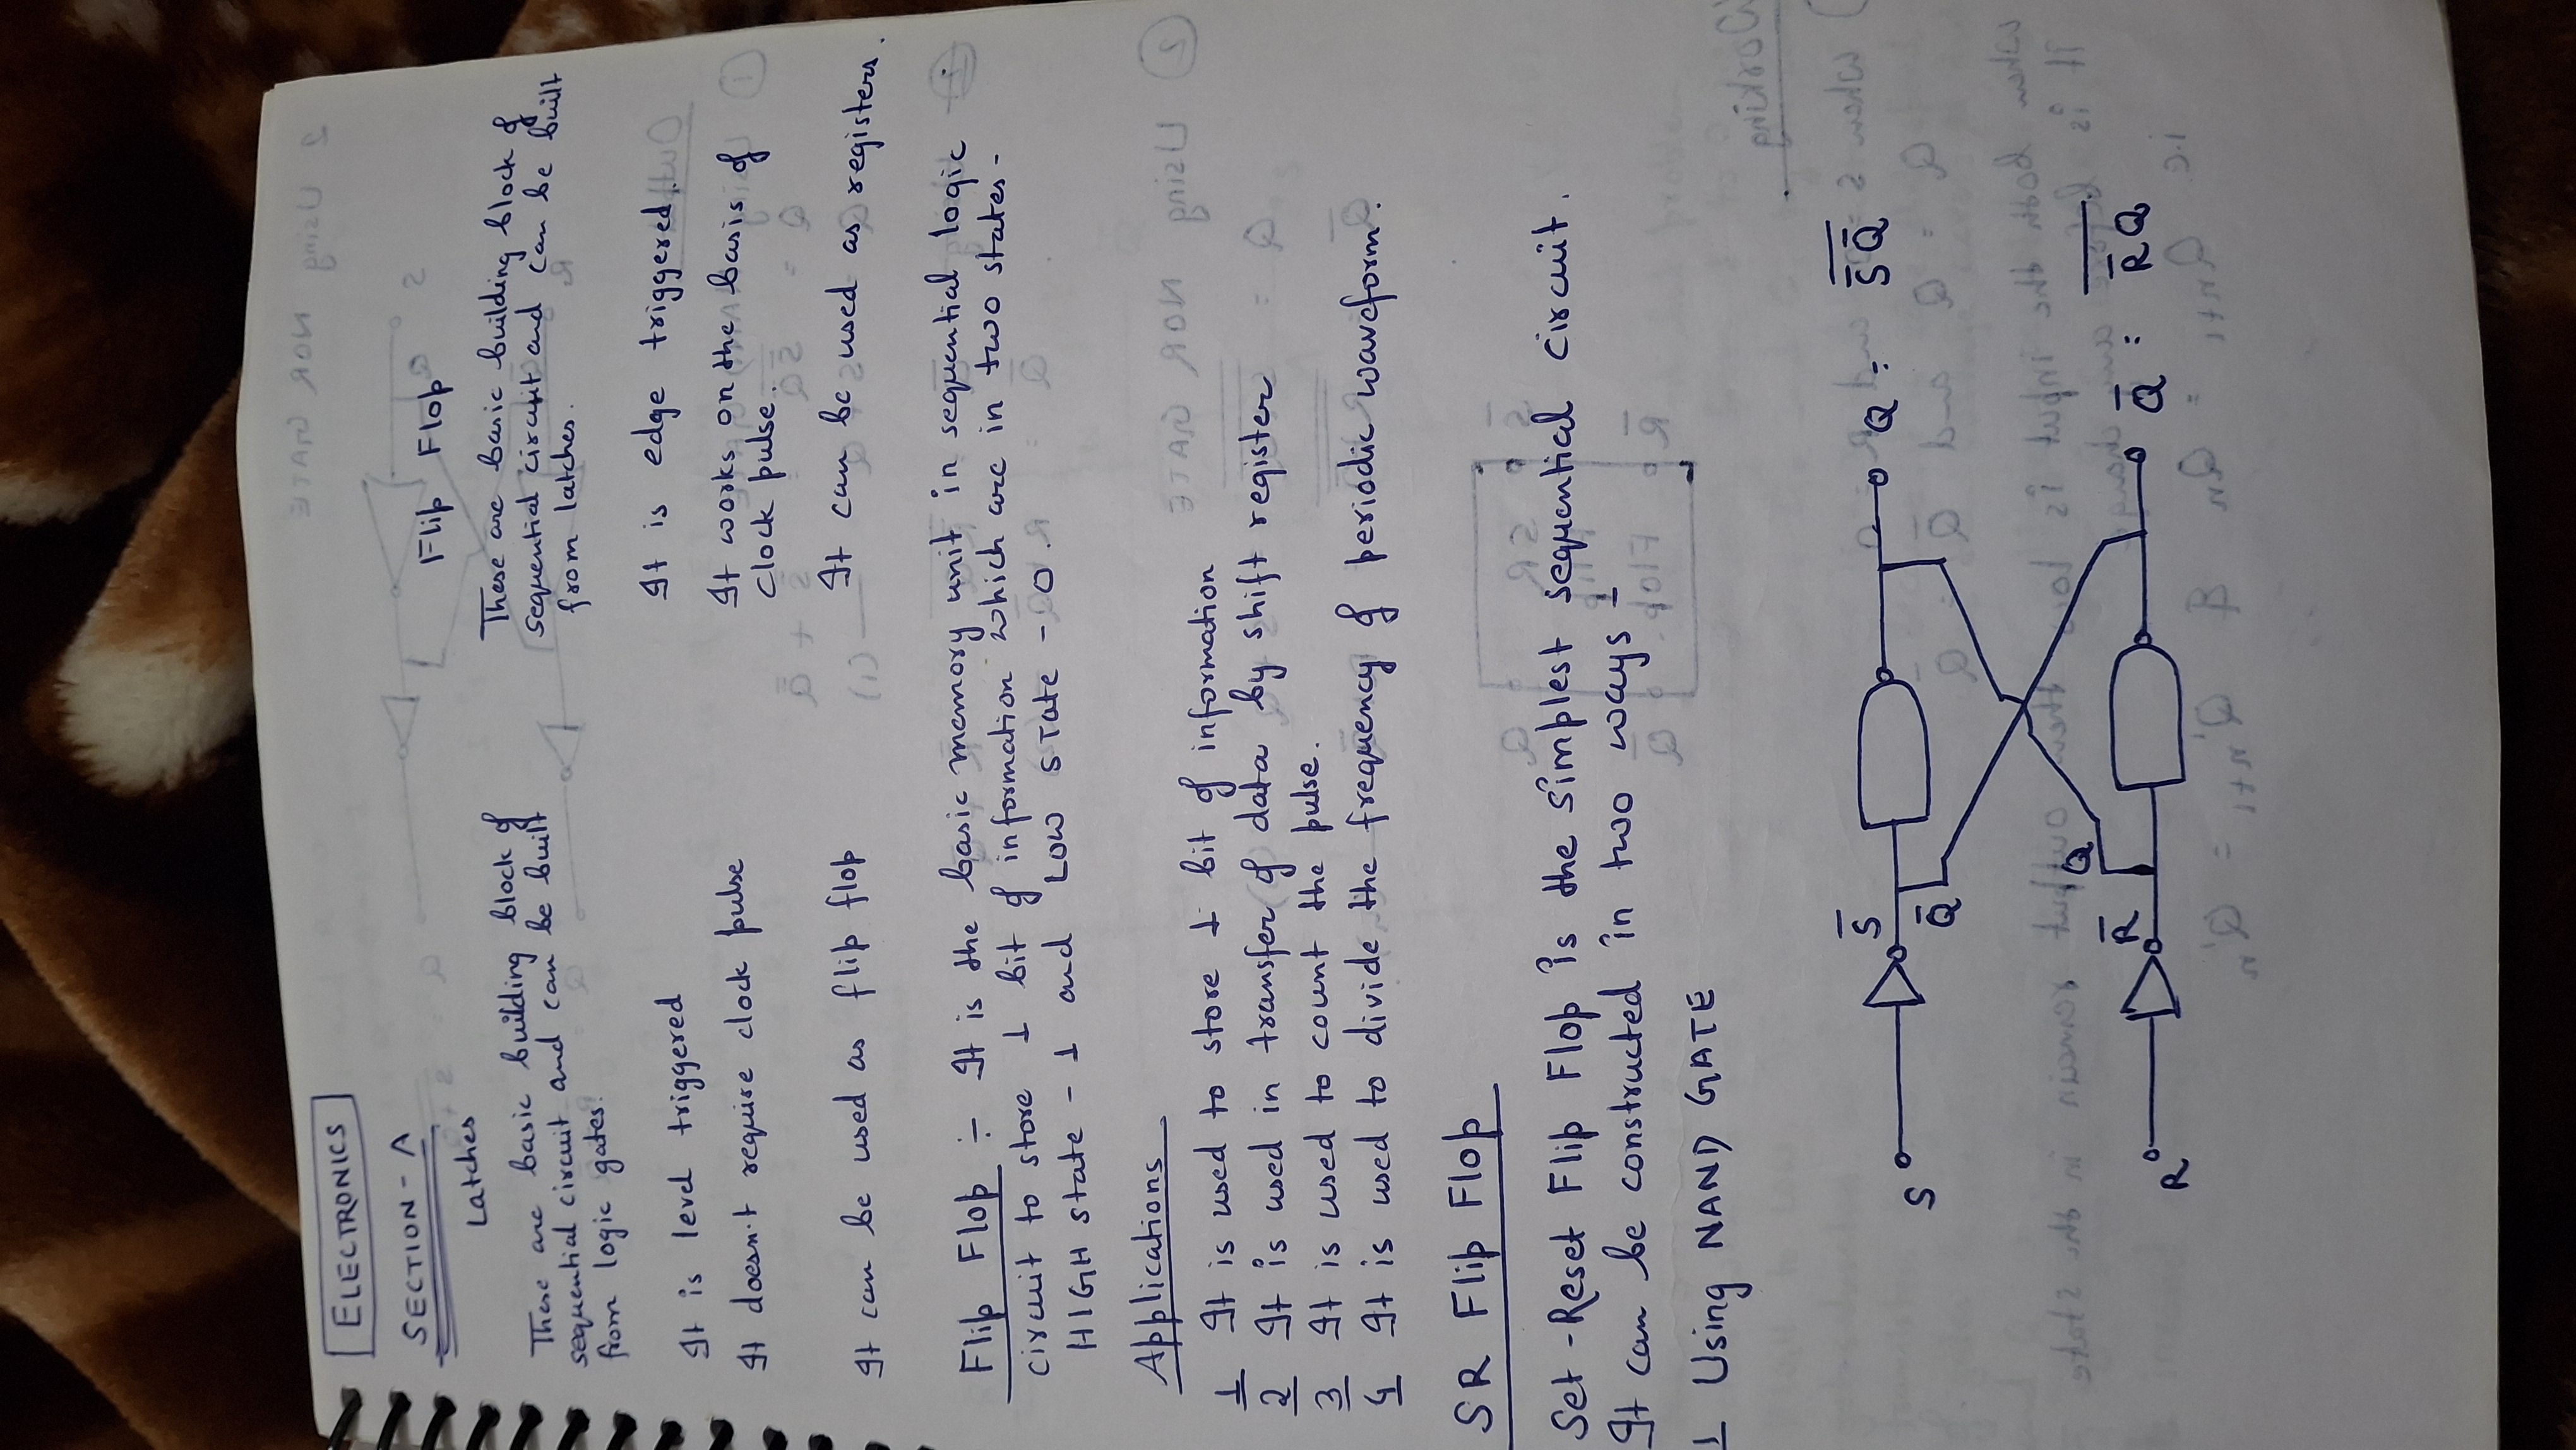 ELECTRONICS
SECTION - A
Latches
These are basic building block of
sequential circuit and can be built
from logic gates.
It is level triggered
It doesn't require clock pulse
It can be used as flip flop
Flip Flop
These are basic building block of
sequential circuit and can be built
from latches.
It is edge triggered.
It works on the basis of
clock pulse.
It can be used as registers.
Flip Flop ÷ It is the basic memory unit in sequential logic
circuit to store 1 bit of information which are in two states.
HIGH state - 1 and LOW STATE - 0.
Applications
1 It is used to store 1 bit of information
2 It is used in transfer of data by shift register
3 It is used to count the pulse.
4 It is used to divide the frequency of periodic waveform.
SR Flip Flop
Set-Reset Flip Flop is the simplest sequential circuit.
It can be constructed in two ways :
1 Using NAND GATE
S S̅ Q̅ Q : \overline{S̅ Q̅}
R R̅ Q Q̅ : \overline{R̅ Q}